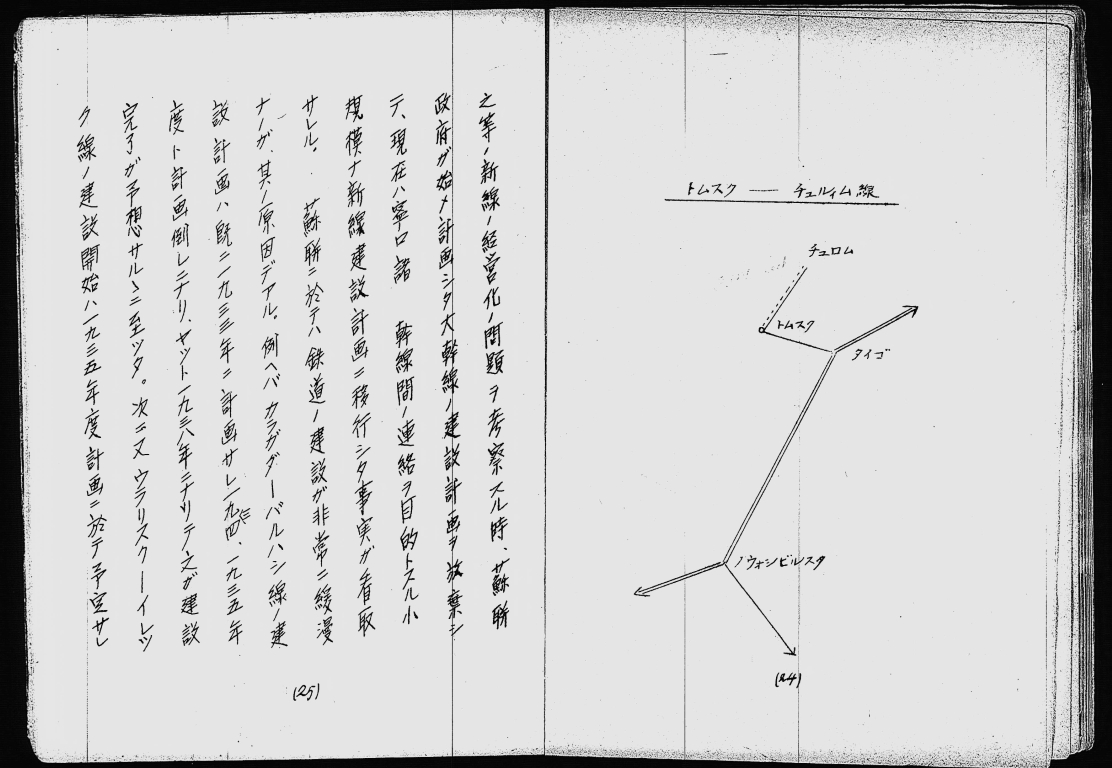 トムスク ── チュルイム線
チュロム
トムスク
タイゴ
ノウォシビルスク
(24)
之等ノ新線ノ経営化ノ問題ヲ考察スル時、蘇聯
政府ガ始メ計画シタ大幹線ノ建設計画ヲ放棄シ
テ、現在ハ寧ロ諸 幹線間ノ連絡ヲ目的トスル小
規模ナ新線建設計画ニ移行シタ事実ガ看取
サレル。 蘇聯ニ於テハ鉄道ノ建設ガ非常ニ緩漫
ナノガ、其ノ原因デアル。例ヘバカラガダーバルハシ線ノ建
設計画ハ既ニ一九三三年ニ計画サレ一九三四、一九三五年
度ト計画倒レニナリ、ヤット一九三八年ニナリテ之ガ建設
完了ガ予想サルヽニ至ツタ。次ニ又ウラリスクーイレツ
ク線ノ建設開始ハ一九三五年度計画ニ於テ予定サレ
(25)